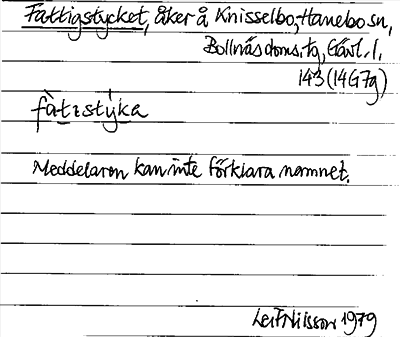 Fattigstycket, åker å Knisselbo, Hanebo sn,
Bollnäs doms. tg, Gävl. l.
143 (14G7g)
fàtıstýka
Meddelaren kan inte förklara namnet.
Leif Nilsson 1979